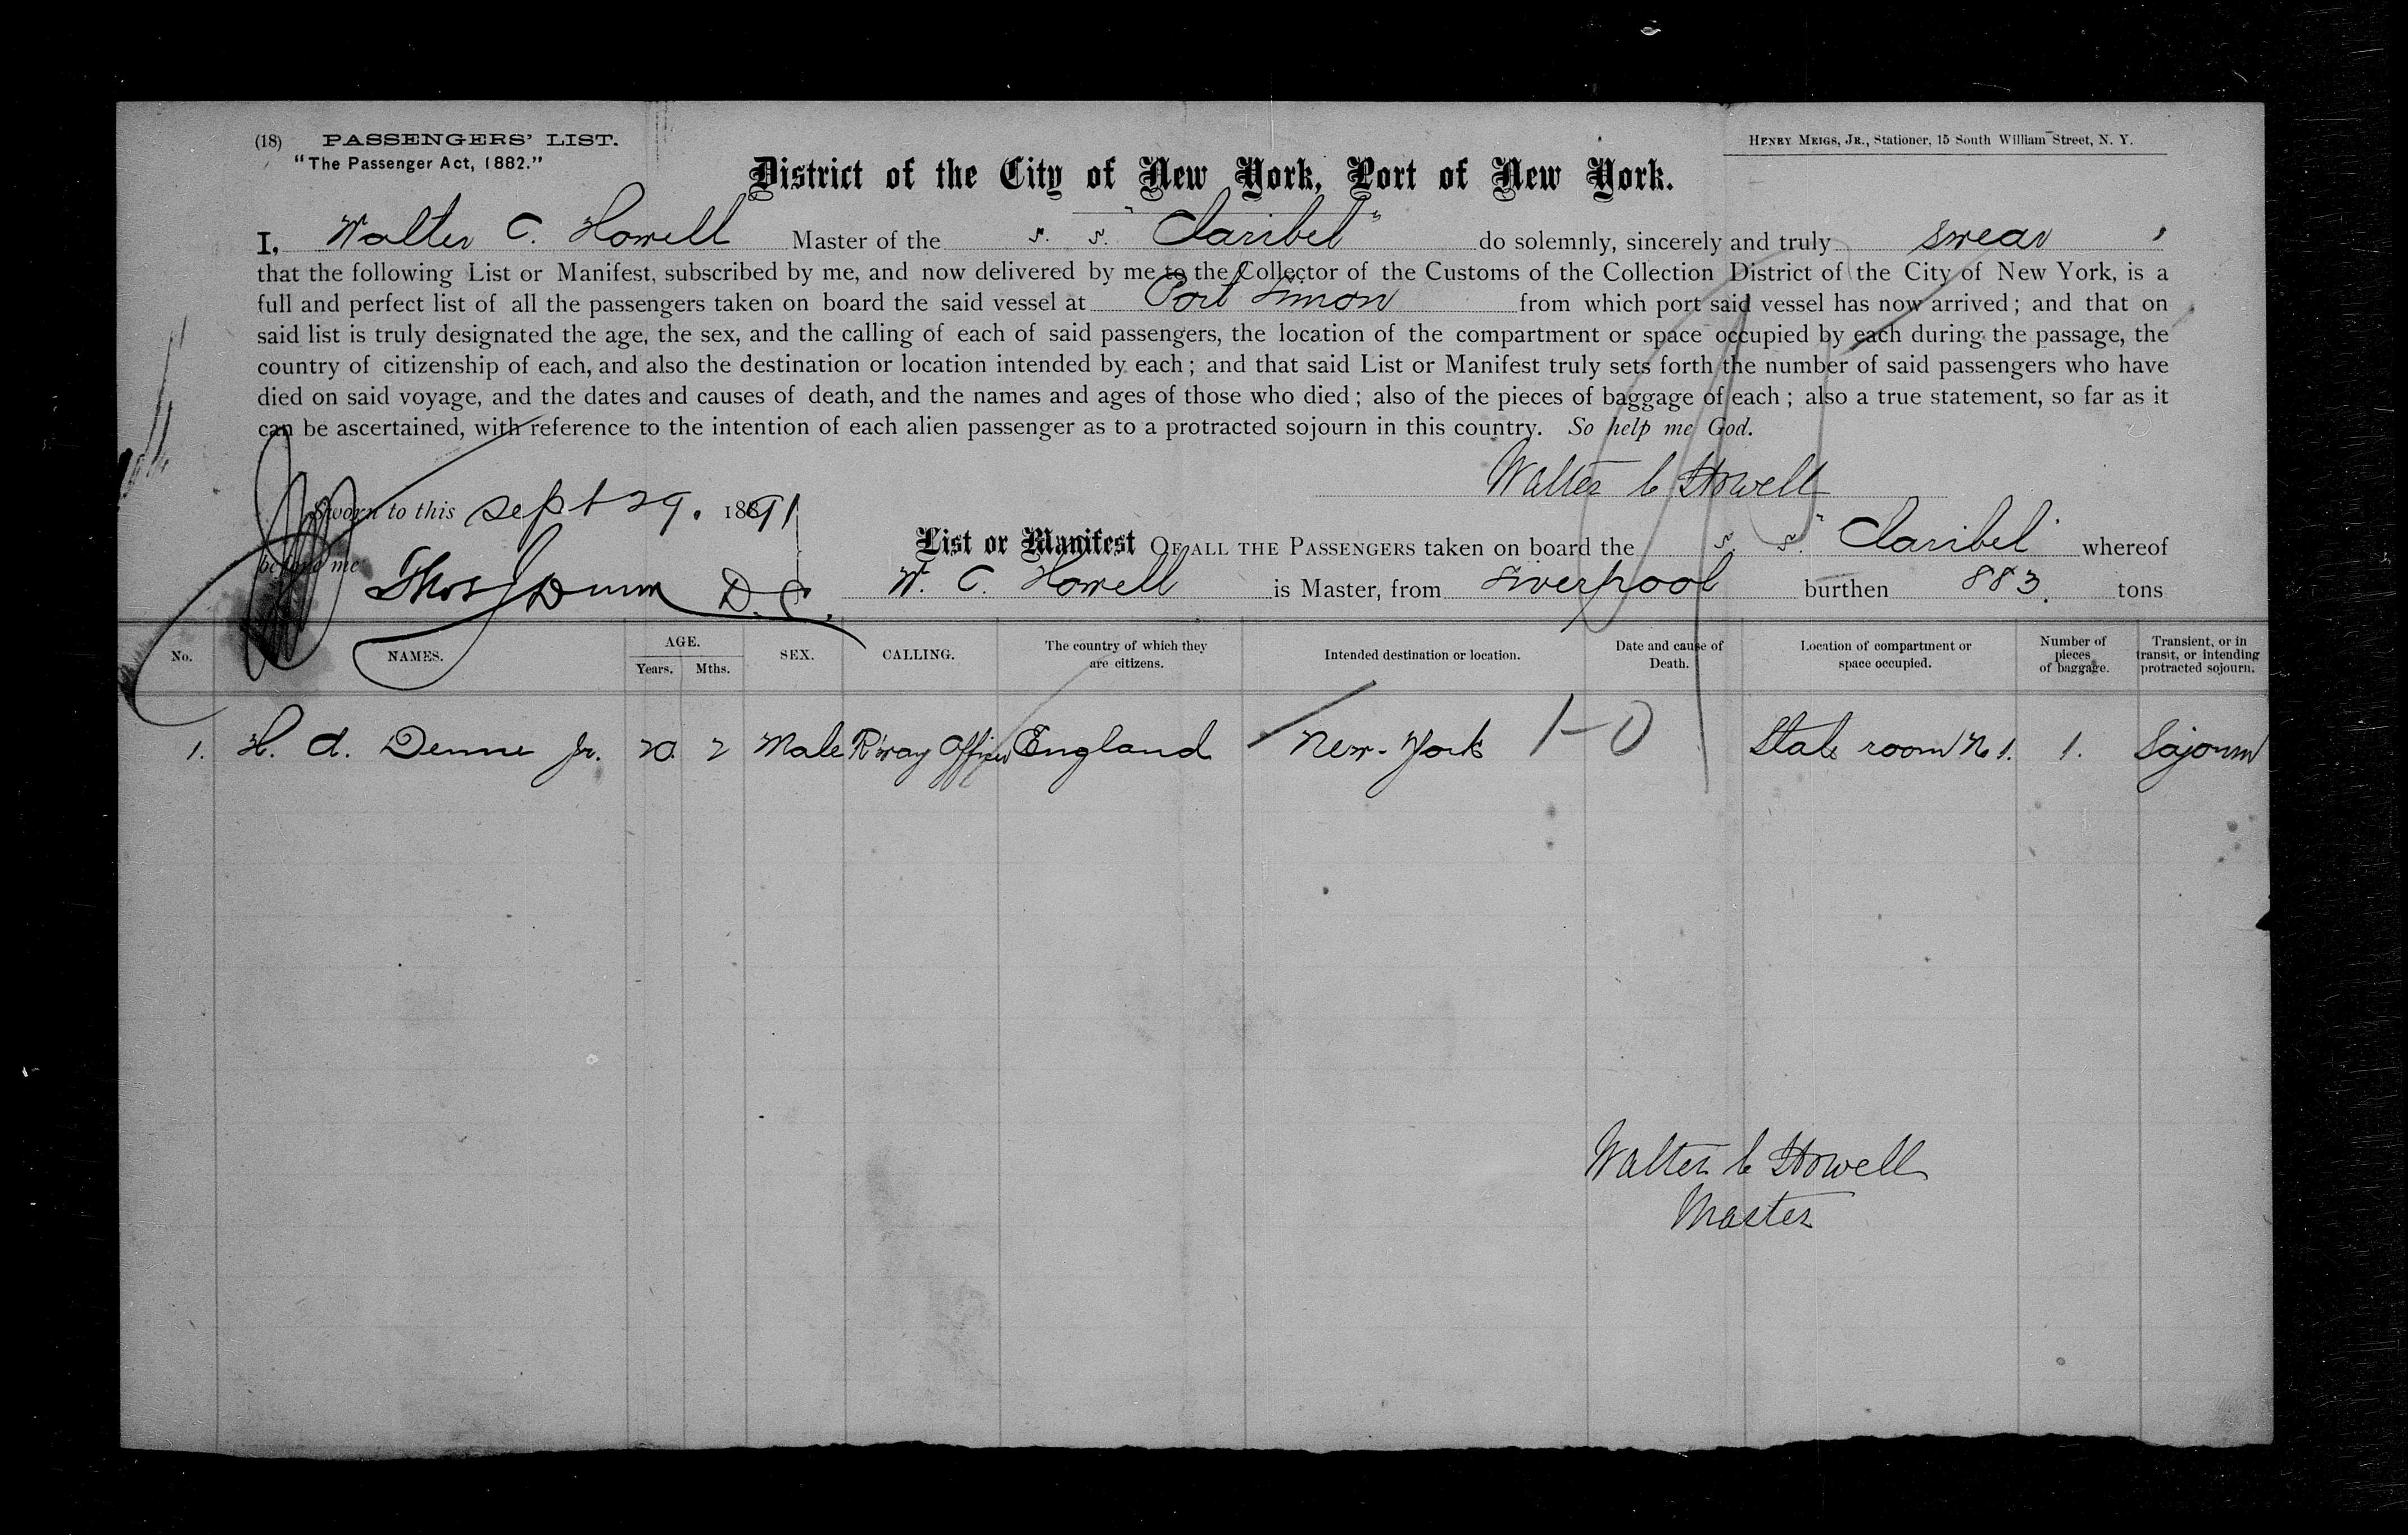 (18) PASSENGERS' LIST.
"The Passenger Act, 1882."
HENRY MEIGS, JR., Stationer, 15 South William Street, N. Y.
District of the City of New York, Port of New York.
I, Walter C. Howell Master of the s. s. "Claribel" do solemnly, sincerely and truly swear,
that the following List or Manifest, subscribed by me, and now delivered by me to the Collector of the Customs of the Collection District of the City of New York, is a
full and perfect list of all the passengers taken on board the said vessel at Port Limon from which port said vessel has now arrived; and that on
said list is truly designated the age, the sex, and the calling of each of said passengers, the location of the compartment or space occupied by each during the passage, the
country of citizenship of each, and also the destination or location intended by each; and that said List or Manifest truly sets forth the number of said passengers who have
died on said voyage, and the dates and causes of death, and the names and ages of those who died; also of the pieces of baggage of each; also a true statement, so far as it
can be ascertained, with reference to the intention of each alien passenger as to a protracted sojourn in this country. So help me God.
Walter C Howell
Sworn to this Sept 29. 1891
before me
Thos J Dunn D. C.
List or Manifest OF ALL THE PASSENGERS taken on board the s. s. "Claribel" whereof
W. C. Howell is Master, from Liverpool burthen 883. tons
No. NAMES. AGE. Years. Mths. SEX. CALLING. The country of which they are citizens. Intended destination or location. Date and cause of Death. Location of compartment or space occupied. Number of pieces of baggage. Transient, or in transit, or intending protracted sojourn.
1. H. A. Denne Jr. 20. 2 Male R'way Officer England New-York 1-0 State room No 1. 1. Sojourn
Walter C Howell
Master